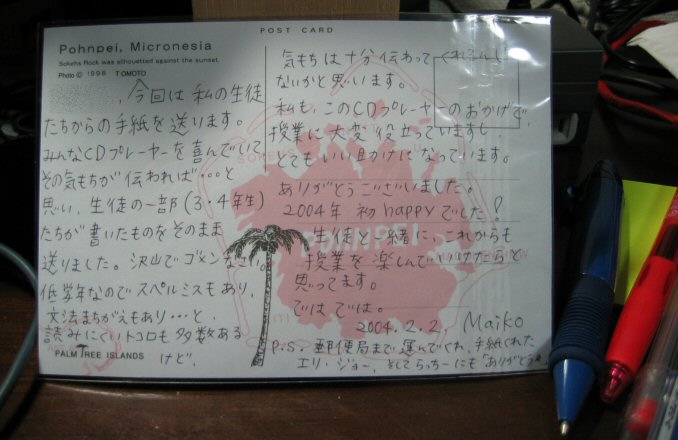 POST CARD
Pohnpei, Micronesia
Sokehs Rock was silhouetted against the sunset.
Photo © 1998 TOMOTO
、今回は私の生徒
たちからの手紙を送ります。
みんなCDプレーヤーを喜んでいて
その気もちが伝われば…と
思い、生徒の一部(3・4年生)
たちが書いたものをそのまま
送りました。沢山でゴメンなさい。
低学年なのでスペルミスもあり、
文法まちがえもあり…と、
読みにくいトコロも多数ある
けど、
PALM TREE ISLANDS
気もちは十分伝わってくれるんじ
ないかと思います。
私も、このCDプレーヤーのおかげで、
授業に大変役立っていますし、
とてもいい助けになっています。
ありがとうございました。
2004年 初happyでした!
生徒と一緒に、これからも
授業を楽しんでいけたらと
思ってます。
ではでは。
2004.2.2, Maiko
P.S. 郵便局まで運んでくれ、手紙くれた
エリ、ジョー、そしてらっちーにも"ありがとう
POHNPEI